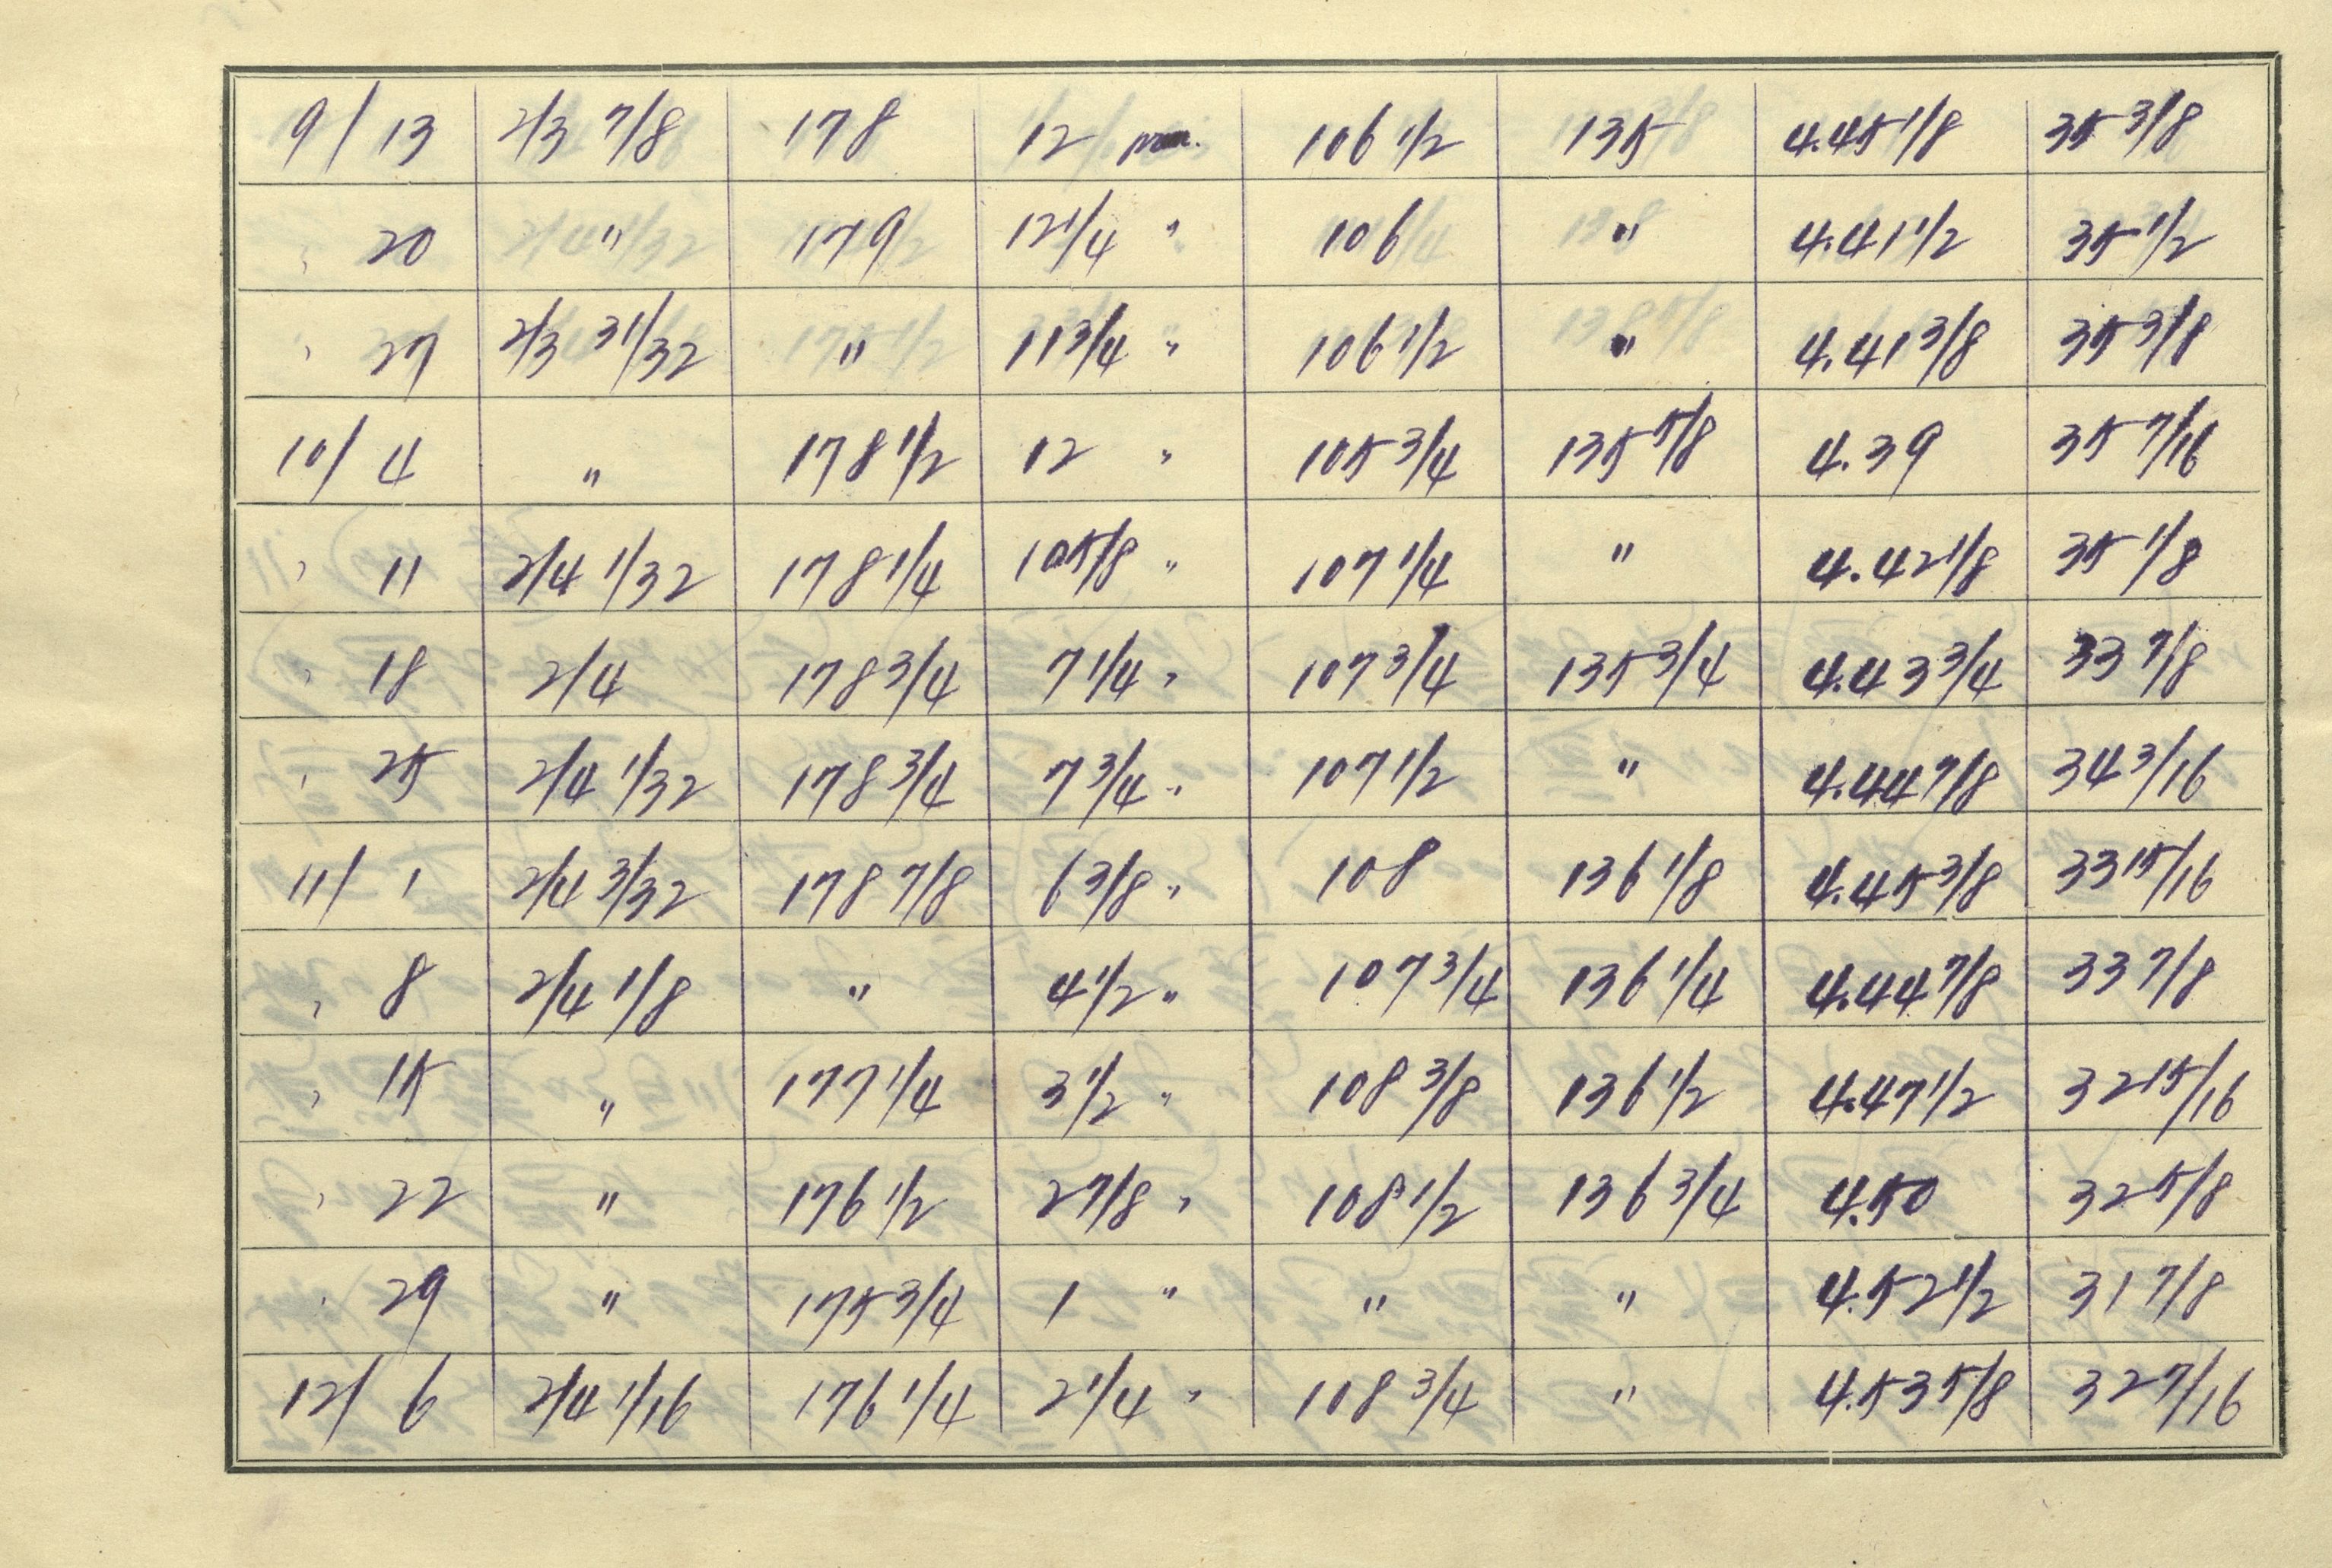 9/ 13 2/3 7/8 178 12 pm. 106 1/2 135 4.45 1/8 35 3/8
, 20 " 179 12 1/4 " 106 " 4.41 1/2 35 1/2
, 27 2/3 31/32 " 11 3/4 " 106 1/2 " 4.41 3/8 35 3/8
10/ 4 " 178 1/2 12 " 105 3/4 135 5/8 4.39 35 7/16
, 11 2/4 1/32 178 1/4 10 5/8 " 107 1/4 " 4.42 1/8 35 1/8
, 18 2/4 178 3/4 7 1/4 " 107 3/4 135 3/4 4.43 3/4 33 7/8
, 25 2/4 1/32 178 3/4 7 3/4 " 107 1/2 " 4.44 7/8 34 3/16
11/ 1 2/4 3/32 178 7/8 6 3/8 " 108 136 1/8 4.45 3/8 33 15/16
, 8 2/4 1/8 " 4 1/2 " 107 3/4 136 1/4 4.44 7/8 33 7/8
, 15 " 177 1/4 3 1/2 " 108 3/8 136 1/2 4.47 1/2 32 15/16
, 22 " 176 1/2 2 7/8 " 108 1/2 136 3/4 4.50 32 5/8
, 29 " 175 3/4 1 " " " 4.52 1/2 31 7/8
12/ 6 2/4 1/16 176 1/4 2 1/4 " 108 3/4 " 4.53 5/8 32 7/16